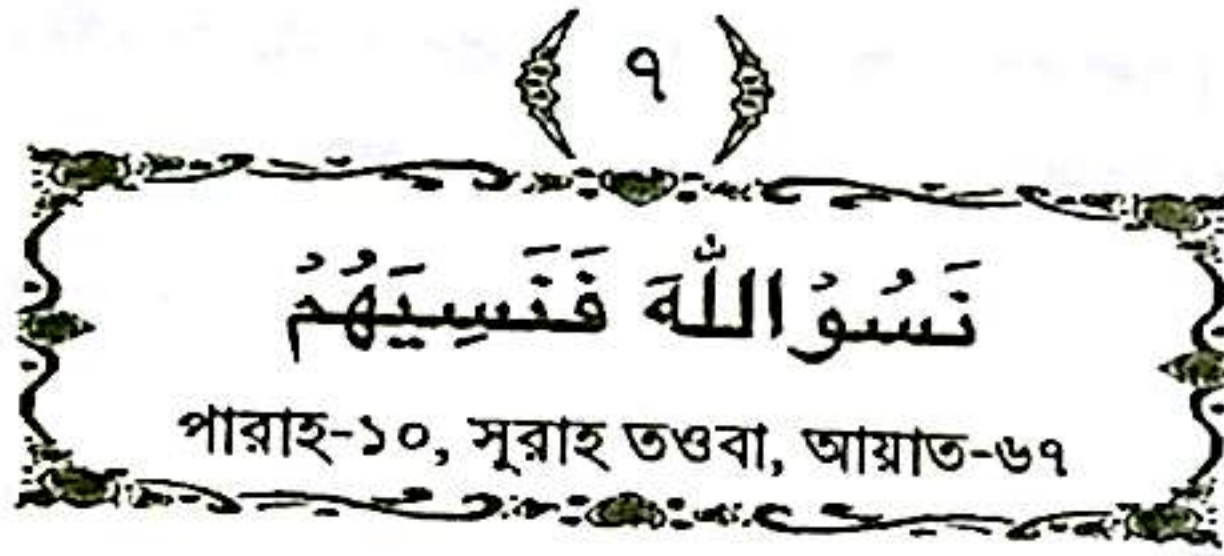 ৭
نَسُوْاللّٰهَ فَنَسِيَهُمْ
পারাহ-১০, সূরাহ তওবা, আয়াত-৬৭